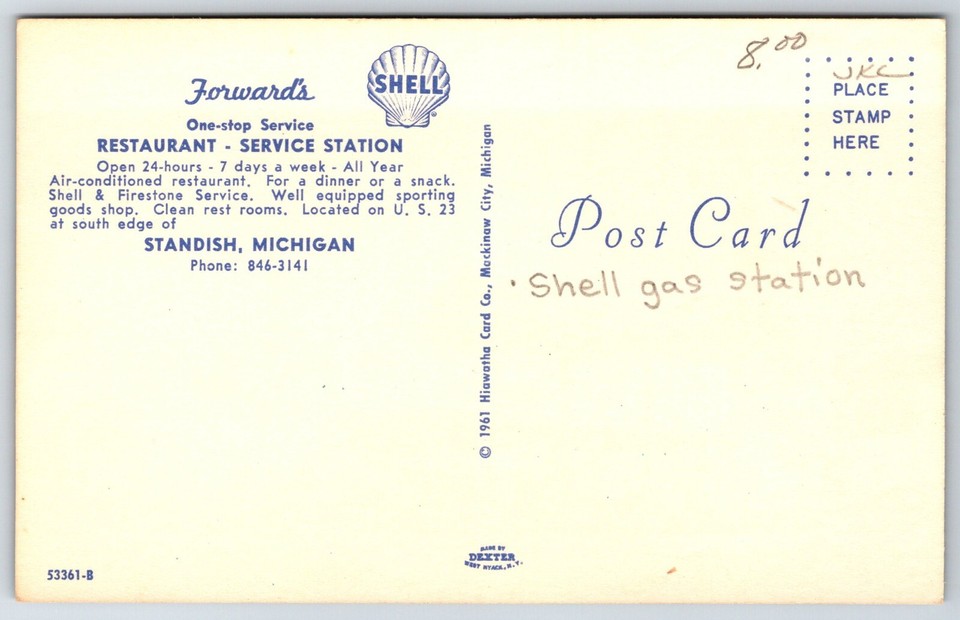 Forward's
SHELL
One-stop Service
RESTAURANT - SERVICE STATION
Open 24-hours - 7 days a week - All Year
Air-conditioned restaurant. For a dinner or a snack.
Shell & Firestone Service. Well equipped sporting
goods shop. Clean rest rooms. Located on U. S. 23
at south edge of
STANDISH, MICHIGAN
Phone: 846-3141
53361-B
© 1961 Hiawatha Card Co., Mackinaw City, Michigan
MADE BY
DEXTER
WEST NYACK, N.Y.
8.00
PLACE
STAMP
HERE
Post Card
Shell gas station